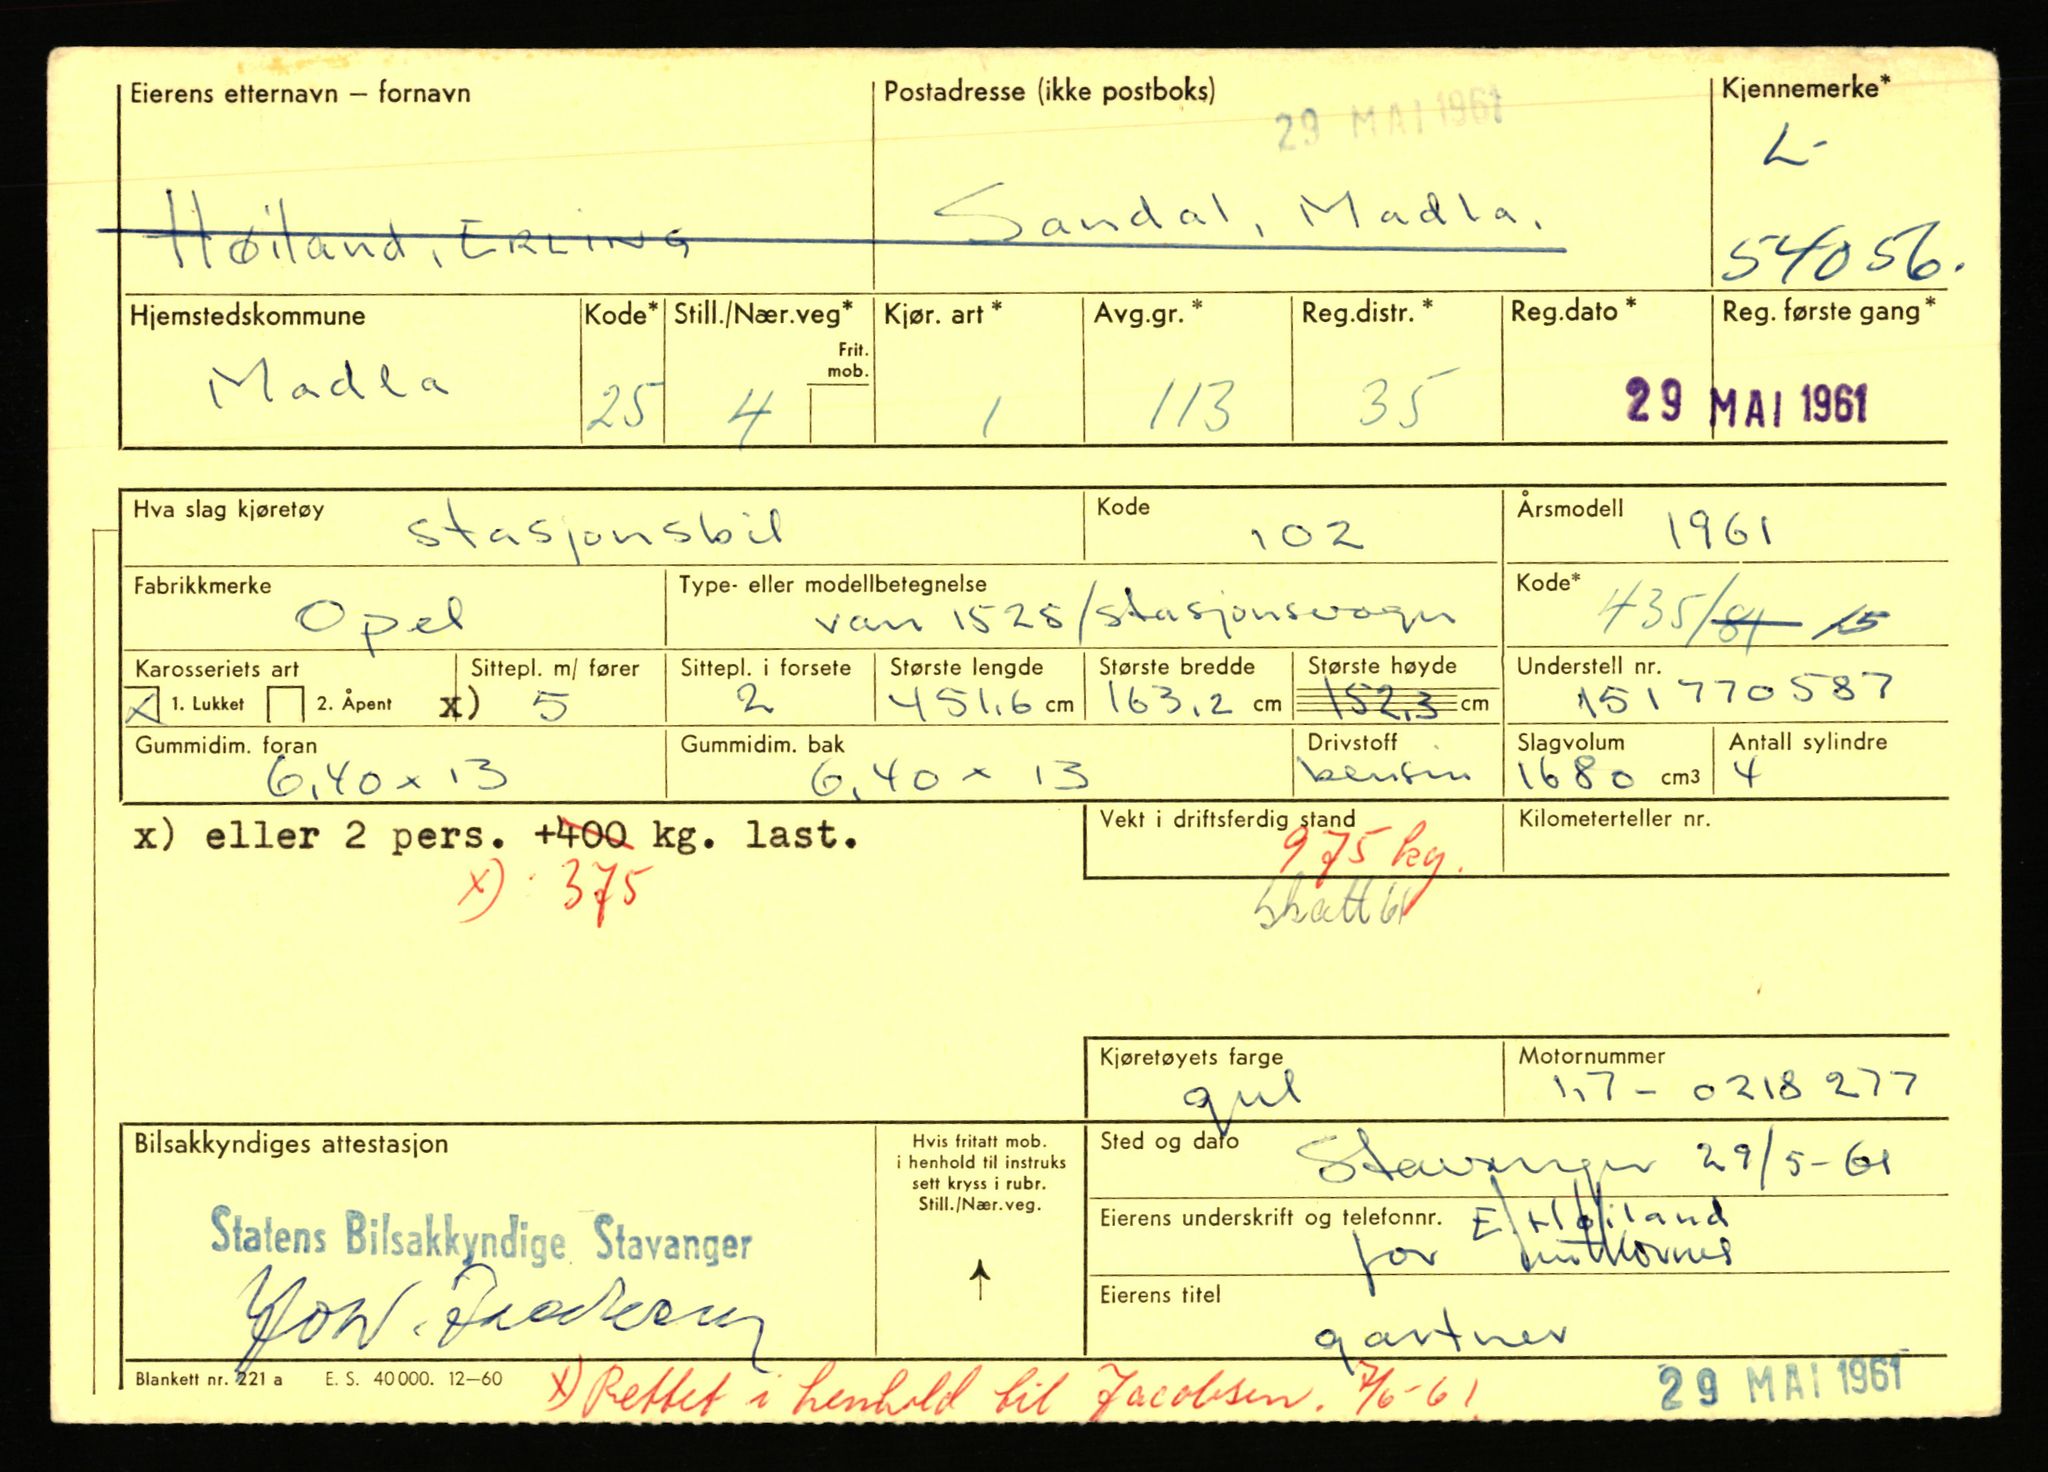 Eierens etternavn — fornavn Postadresse (ikke postboks) Kjennemerke*
29 MAI 1961
L-
Høiland, ERLING Sandal, Madla. 54056.
Hjemstedskommune Kode* Still./Nær.veg* Kjør. art* Avg.gr.* Reg.distr.* Reg.dato* Reg. første gang*
Frit.
mob.
Madla 25 4 1 113 35 29 MAI 1961
Hva slag kjøretøy stasjonsbil Kode 102 Årsmodell 1961
Fabrikkmerke Type- eller modellbetegnelse Kode*
Opel van 1528/stasjonsvogn 435/81 15
Karosseriets art Sittepl. m/ fører Sittepl. i forsete Største lengde Største bredde Største høyde Understell nr.
x 1. Lukket 2. Åpent x) 5 2 451,6 cm 163,2 cm 152,3 cm 151770587
Gummidim. foran Gummidim. bak Drivstoff Slagvolum Antall sylindre
6,40 x 13 6,40 x 13 bensin 1680 cm3 4
x) eller 2 pers. +400 kg. last. Vekt i driftsferdig stand Kilometerteller nr.
975 kg.
x) 375
skatt 61
Kjøretøyets farge Motornummer
gul 1,7 - 0218277
Bilsakkyndiges attestasjon
Hvis fritatt mob.
i henhold til instruks
sett kryss i rubr.
Still./Nær.veg.
Sted og dato Stavanger 29/5-61
Statens Bilsakkyndige Stavanger
Eierens underskrift og telefonnr. E. Høiland
for
Eierens titel
gartner
Blankett nr. 221 a E. S. 40 000. 12—60
x) Rettet i henhold til Jacobsen. 7/6-61.
29 MAI 1961